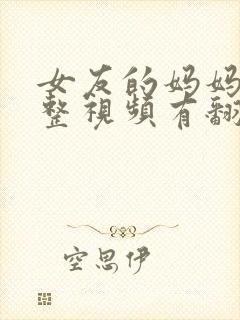 女友的妈妈
整視頻有翻
空思伊